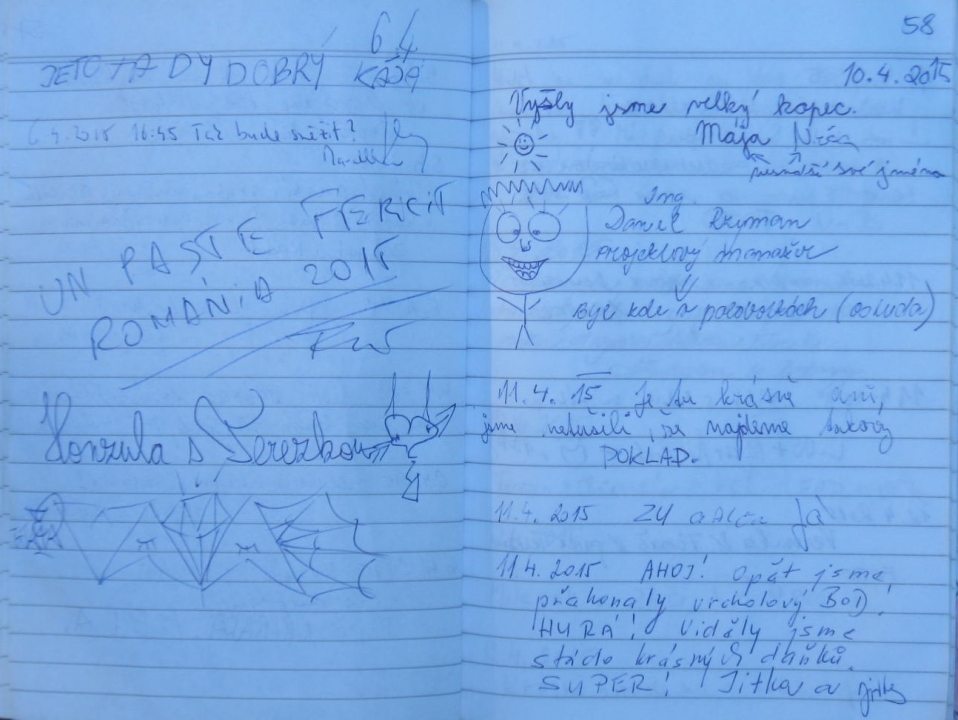 6.4
JE TO TADY DOBRÝ KÁJA
6.4.2015 16:45 Tak bude sněžit?
UN PASTE FERICIT
ROMÁNIA 2015
Honzula s Terezkou
58
10.4.2015
Vyšly jsme velký kopec.
Mája
nesnáší své jméno
Ing.
Daniel Ryman
projektový manažer
Být kdo v polovočkách
11.4.15 je tu krásně ani,
jsme netušili, že najdeme takový
POKLAD.
11.4.2015 já
11.4.2015 AHOJ! Opět jsme
překonaly vrcholový BOD!
HURÁ! Viděly jsme
stádo krásných daňků.
SUPER! Jitka a